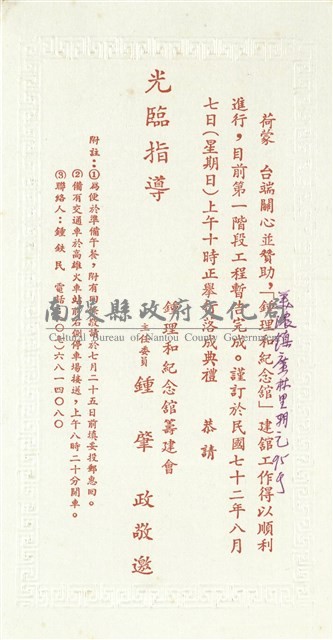 荷蒙　台端關心並贊助，「鍾理和紀念館」建舘工作得以順利
進行，目前第一階段工程暫
完
。謹訂於民國七十二年八月
七日(星期日)上午十時正舉
落成典禮　恭請
光臨指導
鍾理和紀念舘籌建會
主任委員
鍾肇政敬邀
附註：①為便於準備午餐，附有回
敬請於七月二十五日前填妥投郵惠回。
②備有交通車於高雄火車站
右側停車場接送，上午八時二十分開車。
③聯絡人：鍾鉄民　電話
〇
)六八一四〇八〇
美濃鎮廣林里朝元95号
南投縣政府文化局
Cultural Bureau of Nantou County Government